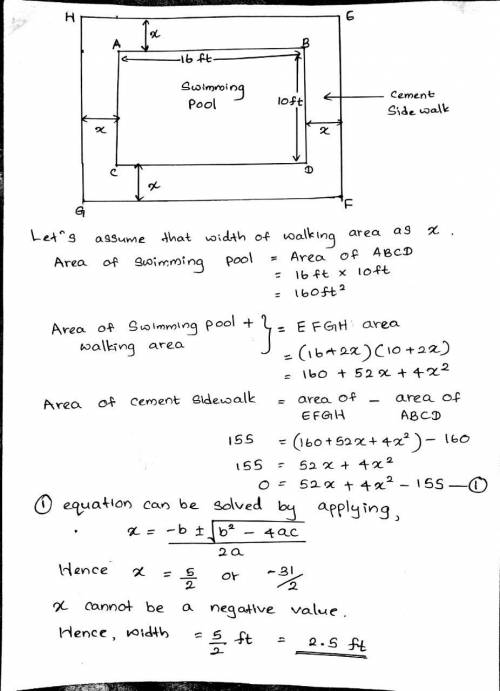 H E
x
A B
16 ft
Swimming
Pool
10ft
Cement
Side walk
x x
C D
x
G F
Let's assume that width of walking area as x.
Area of swimming pool = Area of ABCD
= 16 ft x 10ft
= 160ft²
Area of Swimming Pool + } = EFGH area
walking area
= (16+2x)(10+2x)
= 160 + 52x + 4x²
Area of cement sidewalk = area of - area of
EFGH ABCD
155 = (160+52x+4x²) - 160
155 = 52x + 4x²
0 = 52x + 4x² - 155 — ①
① equation can be solved by applying,
x = -b ± √b² - 4ac / 2a
Hence x = 5/2 or -31/2
x cannot be a negative value.
Hence, width = 5/2 ft = 2.5 ft